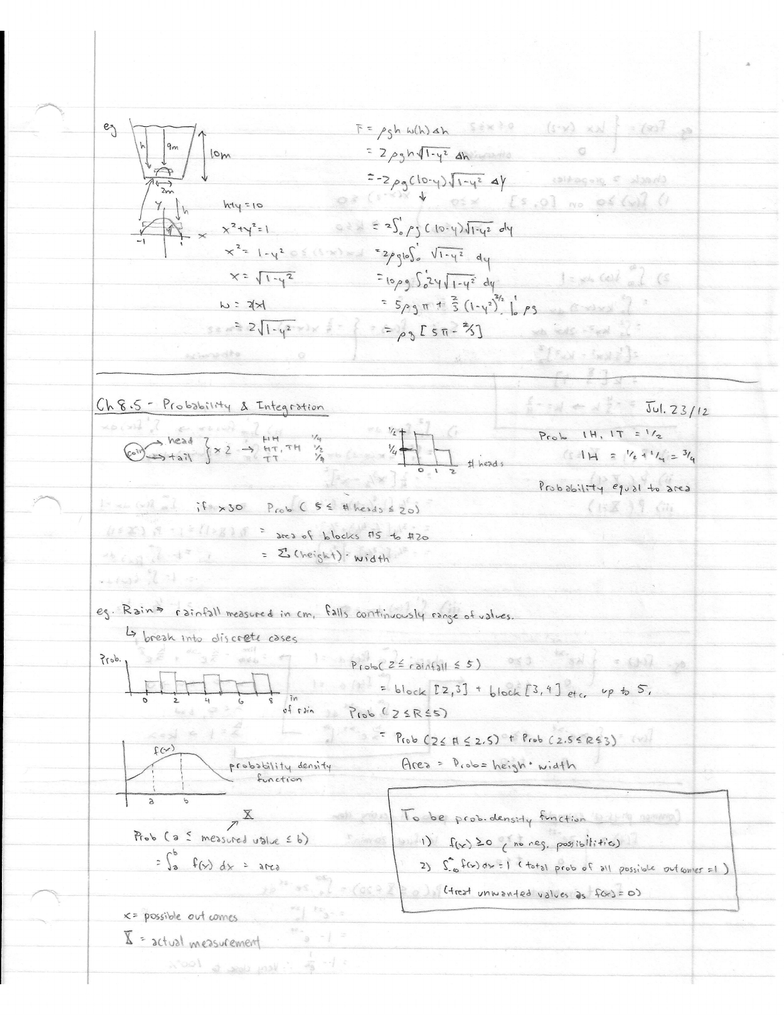 eg
h
9m
10m
2m
y
h
-1
1
x
h+y=10
x²+y²=1
x² = 1-y²
x = √1-y²
w = 2|x|
= 2√1-y²
F = ρgh w(h) Δh
= 2ρgh√1-y² Δh
= -2ρg(10-y)√1-y² Δy
↓
= 2∫₀¹ ρg (10-y)√1-y² dy
= 2ρg10∫₀¹ √1-y² dy
= 10ρg ∫₀¹ 2y√1-y² dy
= 5ρgπ + 2/3 (1-y²)^3/2 |₀¹ ρg
= ρg [5π - 2/3]
Ch 8.5 - Probability & Integration
Jul. 23/12
coin → head
→ tail } x2 →
HH 1/4
HT, TH 1/2
TT 1/4
1/2
1/4
0 1 2 # heads
Prob 1H, 1T = 1/2
1H = 1/2 + 1/4 = 3/4
Probability equal to area
if x30 Prob (5 ≤ # heads ≤ 20)
= area of blocks #5 to #20
= Σ(height)·width
eg. Rain → rainfall measured in cm, falls continuously range of values.
↳ break into discrete cases
Prob.
0 2 4 6 8 in of rain
Prob(2 ≤ rainfall ≤ 5)
= block [2,3] + block [3,4] etc. up to 5.
Prob (2≤R≤5)
= Prob (2≤ # ≤2.5) + Prob (2.5≤R≤3)
Area = Prob = heigh · width
f(x)
a b
probability density function
X
Prob (a ≤ measured value ≤ b)
= ∫ₐᵇ f(x) dx = area
x = possible outcomes
X = actual measurement
To be prob. density function
1) f(x) ≥0 (no neg. possibilities)
2) ∫₋∞^∞ f(x)dx=1 (total prob of all possible outcomes=1)
(treat unwanted values as f(x)=0)